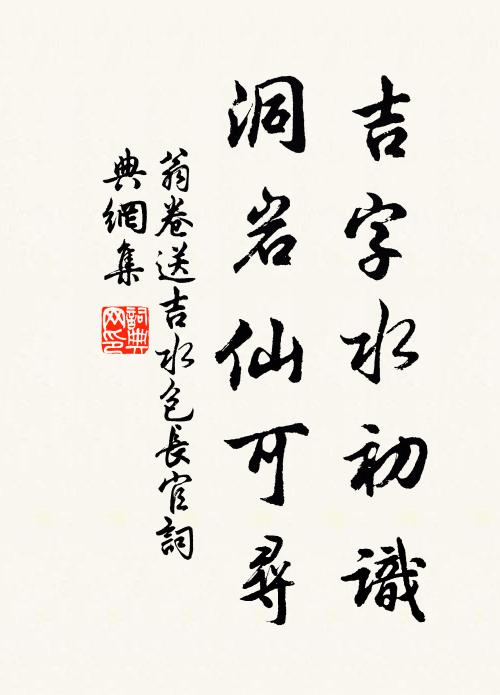 吉字水初識
洞岩仙可尋
翁卷送吉水包長官詞
典網集
詞典
网印